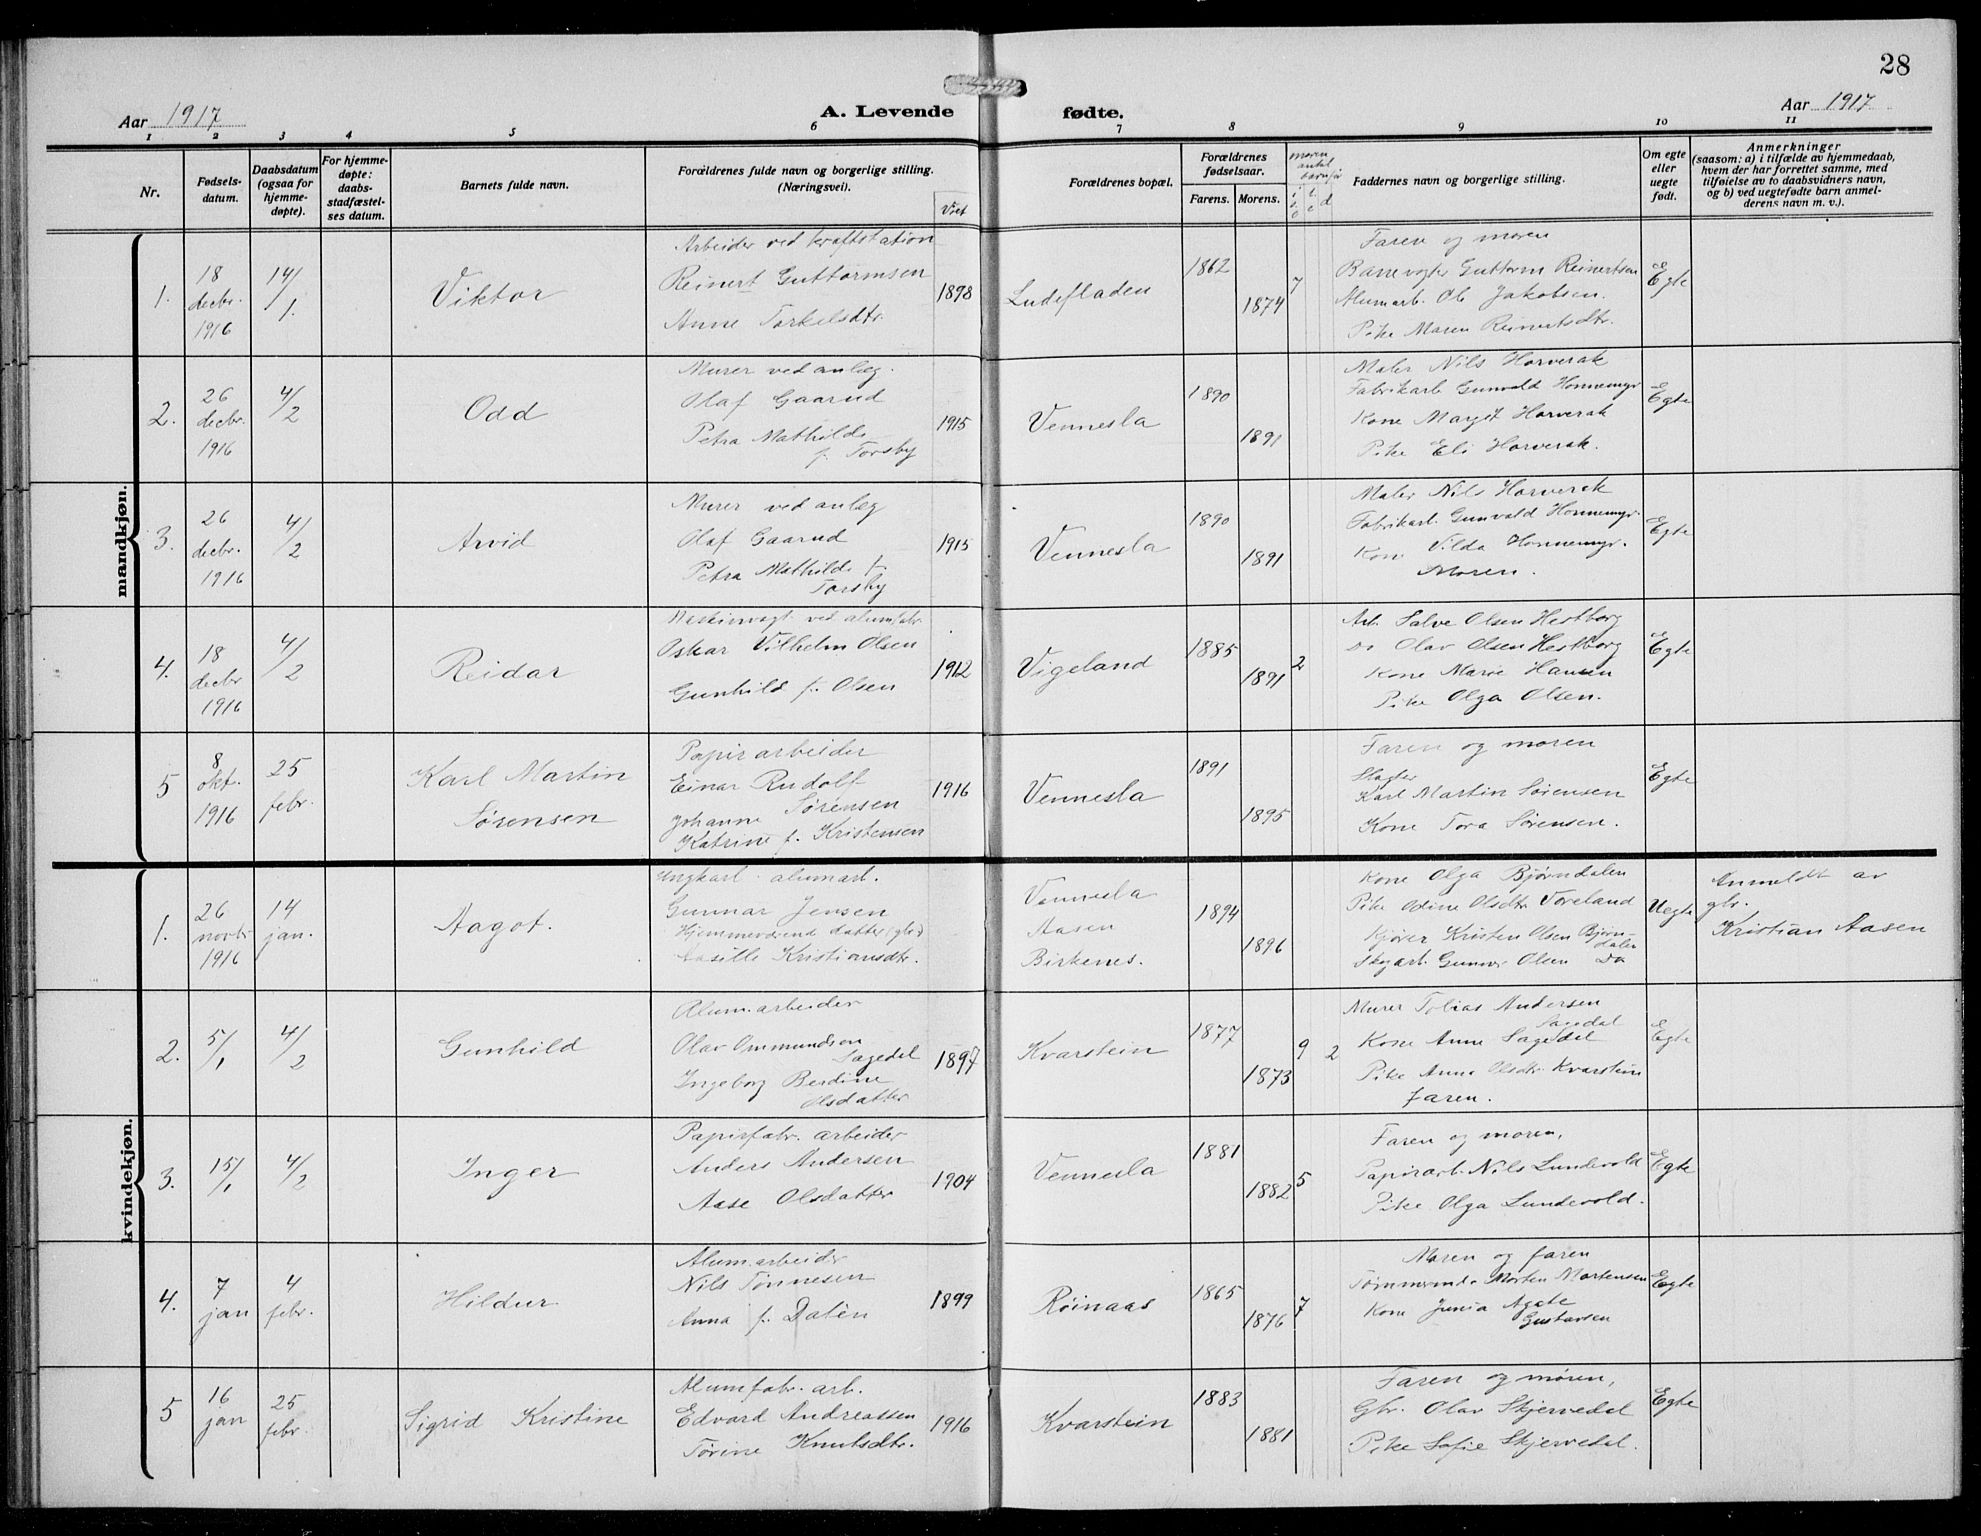 28
Aar 1917
A. Levende fødte.
Aar 1917
1 2 3 4 5 6 7 8 9 10 11
Nr.
Fødsels-
datum.
Daabsdatum
(ogsaa for
hjemme-
døpte).
For hjemme-
døpte:
daabs-
stadfæstel-
ses datum.
Barnets fulde navn.
Forældrenes fulde navn og borgerlige stilling.
(Næringsvei).
Viet
Forældrenes bopæl.
Forældrenes
fødselsaar.
Farens. Morens.
moren
antal
Faddernes navn og borgerlige stilling.
Om egte
eller
uegte
født.
Anmerkninger
(saasom: a) i tilfælde av hjemmedaab,
hvem der har forrettet samme, med
tilføielse av to daabsvidners navn,
og b) ved uegtefødte barn anmel-
derens navn m. v.).
mandkjøn.
1.
18
decbr.
1916
14/1.
Viktor
Arbeider ved kraftstation
Reinert Guttormsen
Anne Torkelsdtr.
1898
Ludefladen
1862
1874
7
Faren og moren
Banevogter Guttorm Reinertsen
Alumarb. Ole Jakobsen.
Pike Maren Reinertsdtr.
Egte
2.
26
decbr.
1916
4/2
Odd
Murer ved anlæg.
Olaf Gaarud
Petra Mathilde
f. Torsby
1915
Vennesla
1890
1891
Maler Nils Horverak
Fabrikarb. Gunvald Honnemyr
Kone Margit Horverak
Pike Eli Horverak.
Egte
3.
26
decbr.
1916
4/2
Arvid
Murer ved anlæg
Olaf Gaarud
Petra Mathilde f.
Torsby
1915
Vennesla
1890
1891
Maler Nils Horverak
Fabrikarb. Gunvald Honnemyr.
Kone Vilda Honnemyr.
Moren.
Egte
4.
18
decbr
1916
4/2
Reidar
Maskinvagt ved alumfabr.
Oskar Vilhelm Olsen
Gunhild f. Olsen
1912
Vigeland
1885
1891
2
Arb. Salve Olsen Hestborg
Do Olav Olsen Hestborg
Kone Marie Hansen
Pike Olga Olsen.
Egte
5
8
okt.
1916
25
febr.
Karl Martin
Sørensen
Papirarbeider
Einar Rudolf
Sørensen
Johanne
Katrine f. Kristensen
1916
Vennesla
1891
1895
Faren og moren
Slagter
Karl Martin Sørensen
Kone Tora Sørensen.
Egte
kvindekjøn.
1.
26
novbr
1916
14
jan.
Aagot.
Ungkarl alumarb.
Gunnar Jensen
Hjemmeværend datter (gbr.)
Aasille Kristiansdtr.
Vennesla
Aasen
Birkenes.
1894
1896
Kone Olga Bjørndalen
Pike Odine Olsdtr. Voreland
Kjører Kristen Olsen Bjørn-
dalen
Skogarb. Gunnar Olsen Do
Uegte
Anmeldt av
gbr.
Kristian Aasen
2.
5/1
4/2
Gunhild
Alum.arbeider
Olav Ommundsen
Sagedal
Ingeborg Berdine
Olsdatter
1897
Kvarstein
1877
1873
9 2
Murer Tobias Andersen
Sagedal
Kone Anne Sagedal
Pike Anna Olsdtr. Kvarstein
Faren.
Egte
3.
15/1
4/2
Inger
Papirfabr. arbeider
Anders Andersen
Aase Olsdatter
1904
Vennesla
1881
1882
5
Faren og moren,
Papirarb. Nils Lundevold
Pike Olga Lundevold.
Egte
4.
7
jan
4
febr.
Hildur
Alum.arbeider
Nils Tønnesen
Anna f. Datèn
1899
Røinaas
1865
1876
7
Moren og faren
Tømmermd. Morten Mortensen
Kone Junia Agate
Gustavsen
Egte
5
16
jan
25
febr.
Sigrid Kristine
Alumfabr. arb.
Edvard Andreassen
Torine Knutsdtr.
1916
Kvarstein
1883
1881
Faren og moren,
Gbr. Olav Skjervedal
Pike Sofie Skjervedal.
Egte